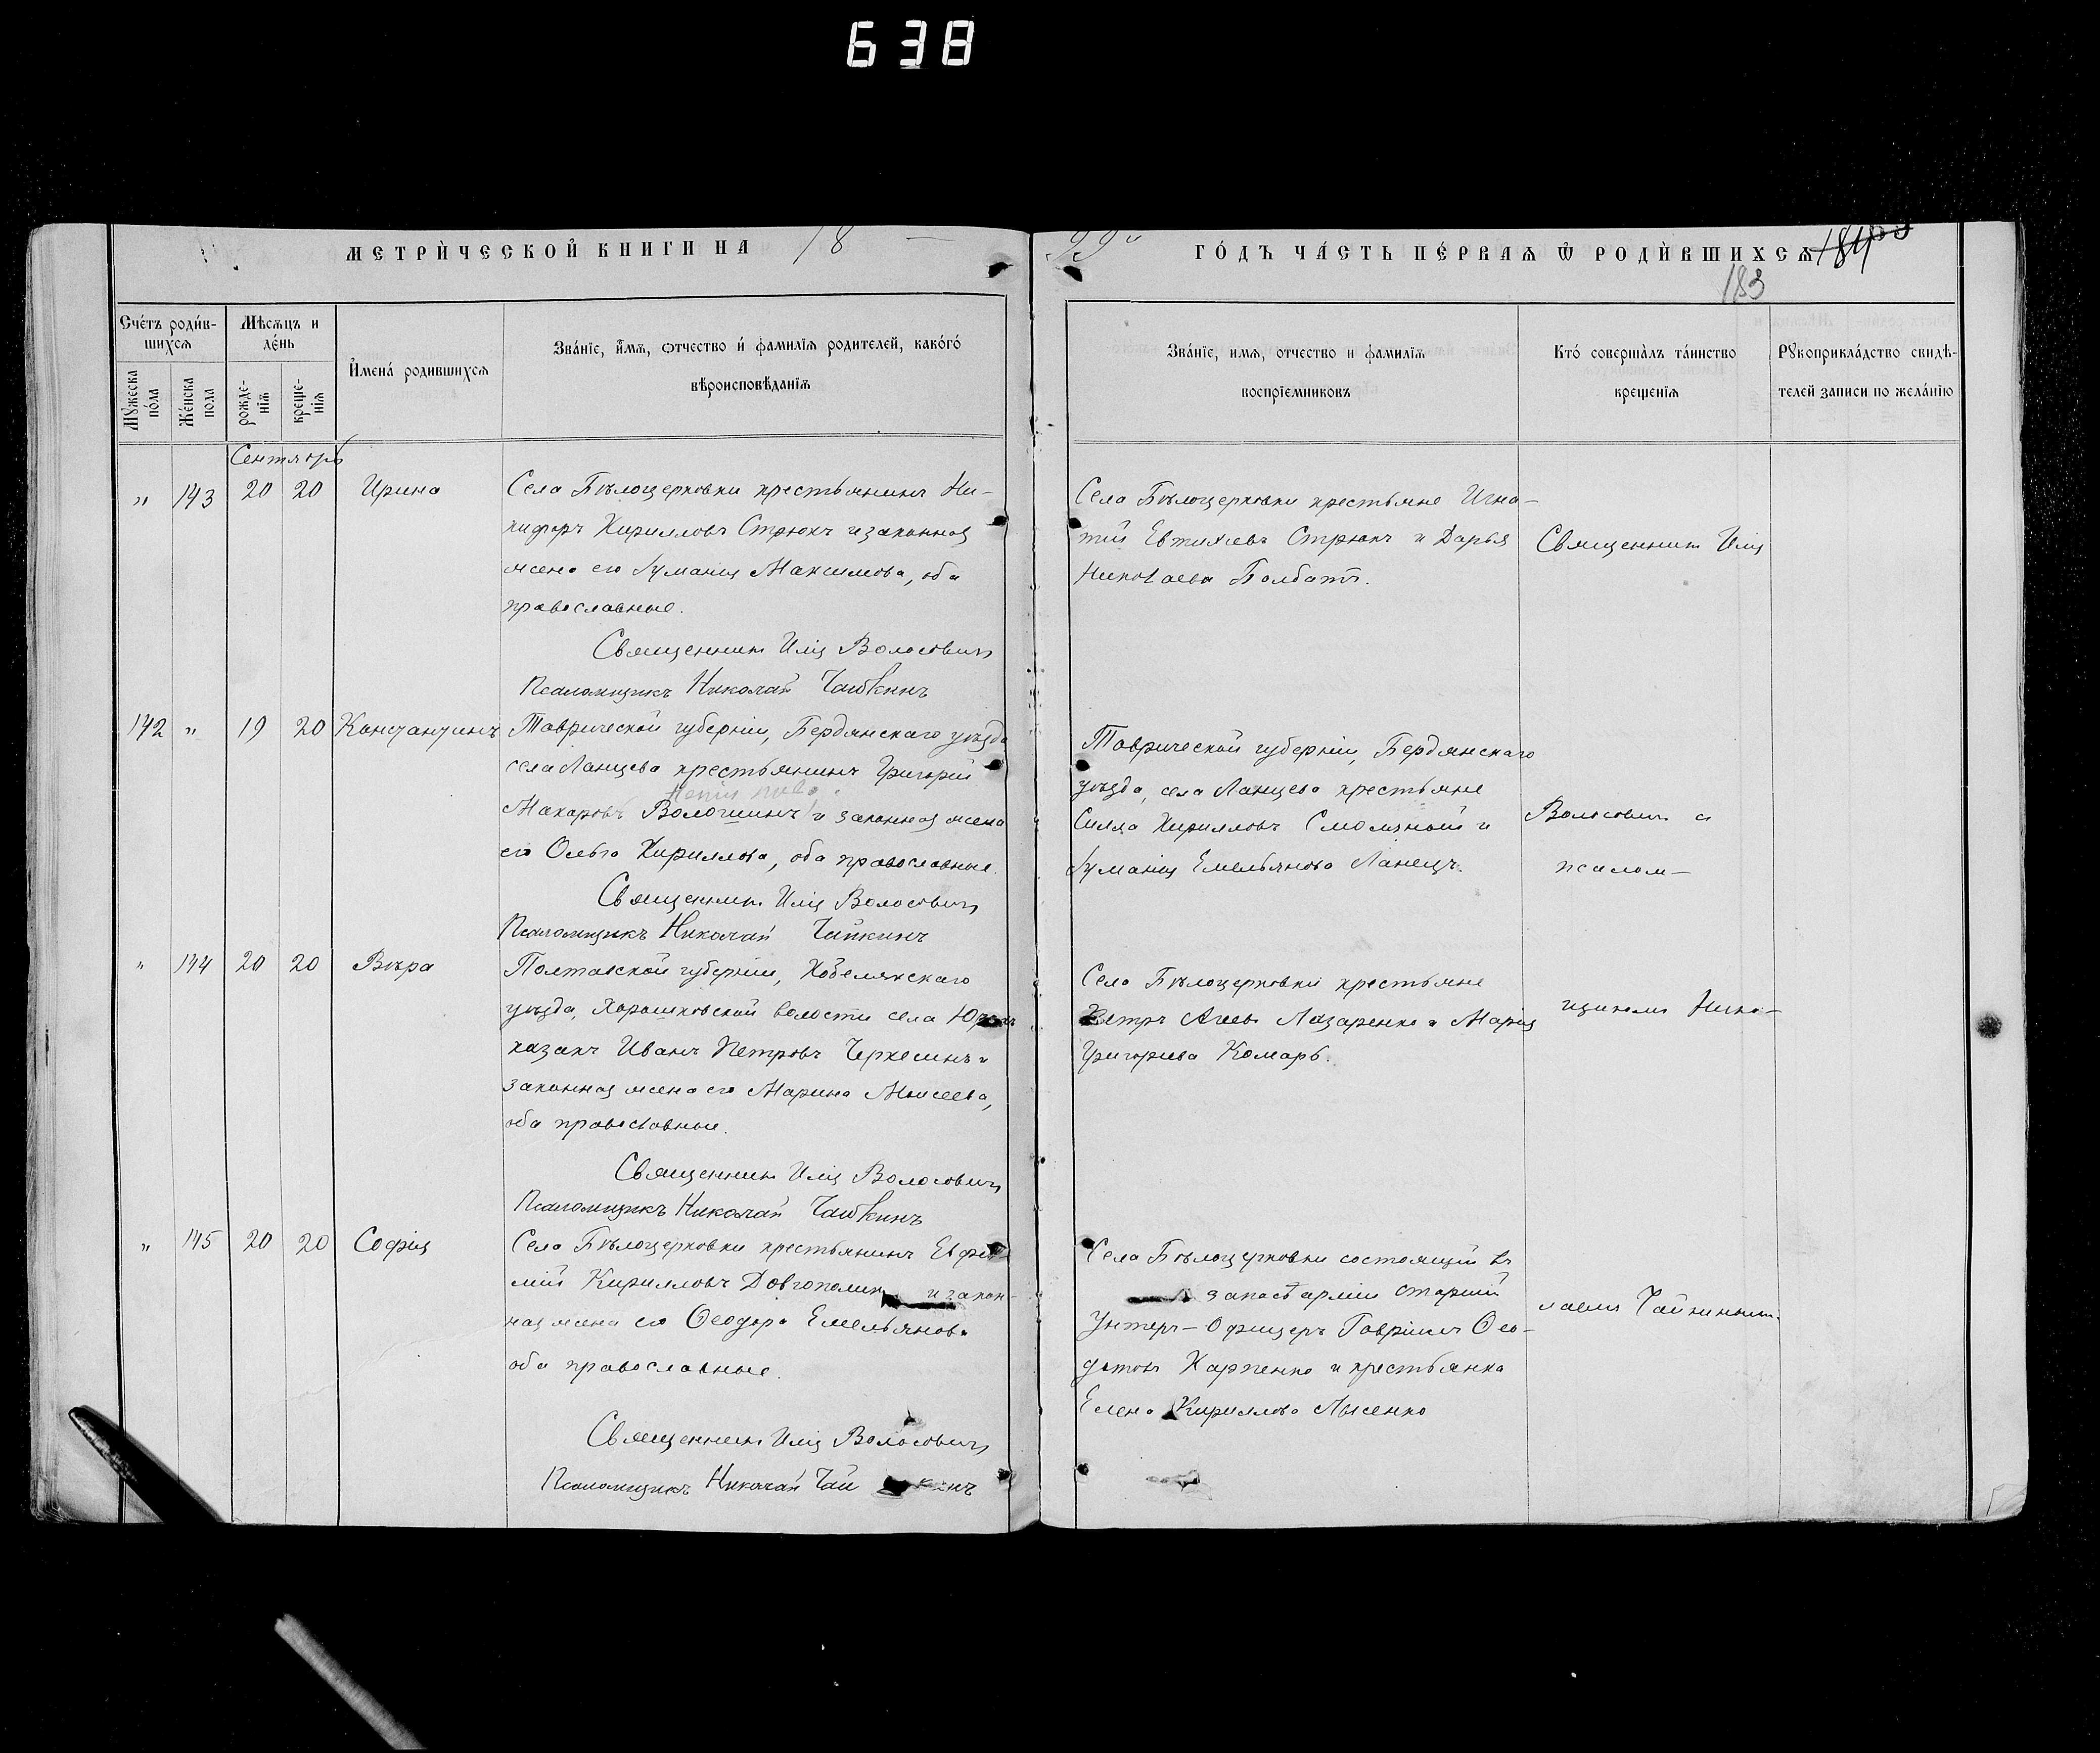 638
МЕТРИЧЕСКОЙ КНИГИ НА 18
99 ГОДЪ ЧАСТЬ ПЕРВАЯ Ѿ РОДИВШИХСЯ
183
Счетъ родив-
шихся
Мужеска
пола
Женска
пола
Мѣсяцъ и
день
рожде-
нія
креще-
нія
Имена родившихся
Званіе, имя, отчество и фамилія родителей, какого
вѣроисповѣданія
Званіе, имя, отчество и фамилія
воспріемниковъ
Кто совершалъ таинство
крещенія
Рукоприкладство свидѣ-
телей записи по желанію
Сентябрь
" 143 20 20 Ирина
Села Бѣлоцерковки крестьянинъ Ни-
кифоръ Кирилловъ Стрюкъ и законная
жена его Іуманія Максимова, оба
православные.
Священникъ Илія Волосовичъ
Псаломщикъ Николай Чайкинъ
Села Бѣлоцерковки крестьяне Игна-
тій Евтихіевъ Стрюкъ и Дарья
Николаева Балбатъ.
Священникъ Илія
142 " 19 20 Константинъ
Таврической губерніи, Бердянскаго уѣзда
села Ланцева крестьянинъ Григорій
Макаровъ Волошинъ и законная жена
его Ольга Кириллова, оба православные.
Священникъ Илія Волосовичъ
Псаломщикъ Николай Чайкинъ
Таврической губерніи, Бердянскаго
уѣзда, села Ланцева крестьяне
Силла Кирилловъ Смоляной и
Іуманія Емельянова Ланецъ.
Волосовичъ съ
псалом-
" 144 20 20 Вѣра
Полтавской губерніи, Кобелякскаго
уѣзда, Хорошковской волости села
казакъ Иванъ Петровъ Черкесинъ и
законная жена его Марина Моисеева,
оба православные.
Священникъ Илія Волосовичъ
Псаломщикъ Николай Чайкинъ
Села Бѣлоцерковки крестьяне
Петръ Агеевъ Лазаренко и Марія
Григорьева Комаръ.
щикомъ Нико-
" 145 20 20 Софія
Села Бѣлоцерковки крестьянинъ Евфи-
мій Кирилловъ Довгополикъ и закон-
ная жена его Ѳеодора Емельянова
оба православные.
Священникъ Илія Волосовичъ
Псаломщикъ Николай Чайкинъ
Села Бѣлоцерковки состоящій въ
запасѣ арміи старшій
Унтеръ-Офицеръ Гавріилъ Ѳео-
дотовъ Карпенко и крестьянка
Елена Кириллова Лысенко
лаемъ Чайкинымъ.